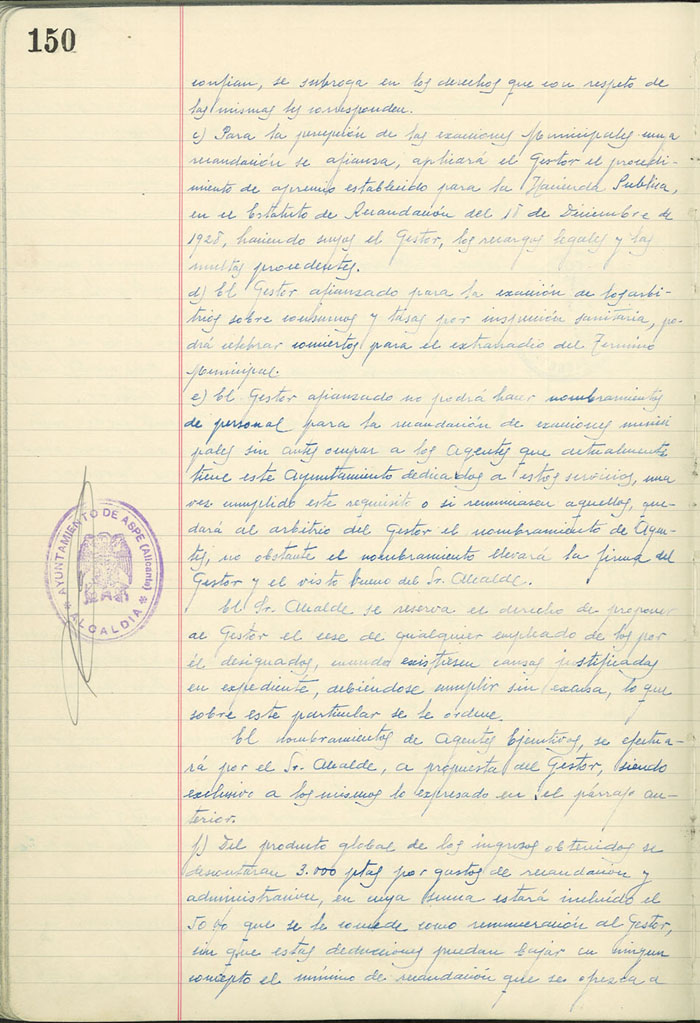 150
confian, se subroga en los derechos que con respeto de
las mismas les corresponden.
c) Para la percepción de las exacciones Municipales cuya
recaudación se afianza, aplicará el Gestor el procedi-
miento de apremio establecido para la Hacienda Publica,
en el Estatuto de Recaudación del 18 de Diciembre de
1928, haciendo suyos el Gestor, los recargos legales y las
multas procedentes.
d) El Gestor afianzado para la exacción de los arbi-
trios sobre consumos y tasas por inspección sanitaria, po-
drá celebrar conciertos para el extrarradio del Termino
Municipal.
e) El Gestor afianzado no podrá hacer nombramientos
de personal para la recaudación de exacciones munici
pales sin antes ocupar a los Agentes que actualmente
tiene este Ayuntamiento dedicados a estos servicios, una
vez cumplido este requisito o si renunciasen aquellos, que-
dará al arbitrio del Gestor el nombramiento de Agen-
tes, no obstante el nombramiento llevará la firma del
Gestor y el visto bueno del Sr. Alcalde.
El Sr. Alcalde se reserva el derecho de proponer
al Gestor el cese de cualquier empleado de los por
él designados, cuando existiesen causas justificadas
en expediente, debiéndose cumplir sin excusa, lo que
sobre este particular se le ordene.
El nombramientos de Agentes Ejecutivos, se efectua-
rá por el Sr. Alcalde, a propuesta del Gestor, siendo
exclusivo a los mismos lo expresado en el párrafo an-
terior.
f) Del producto global de los ingresos obtenidos se
descontaran 3.000 ptas por gastos de recaudación y
administración, en cuya suma estará incluído el
que se le concede como remuneración al Gestor,
sin que estas deducciones puedan bajar en ningun
concepto el mínimo de recaudación que se ofrezca a
AYUNTAMIENTO DE ASPE (Alicante)
* ALCALDIA *